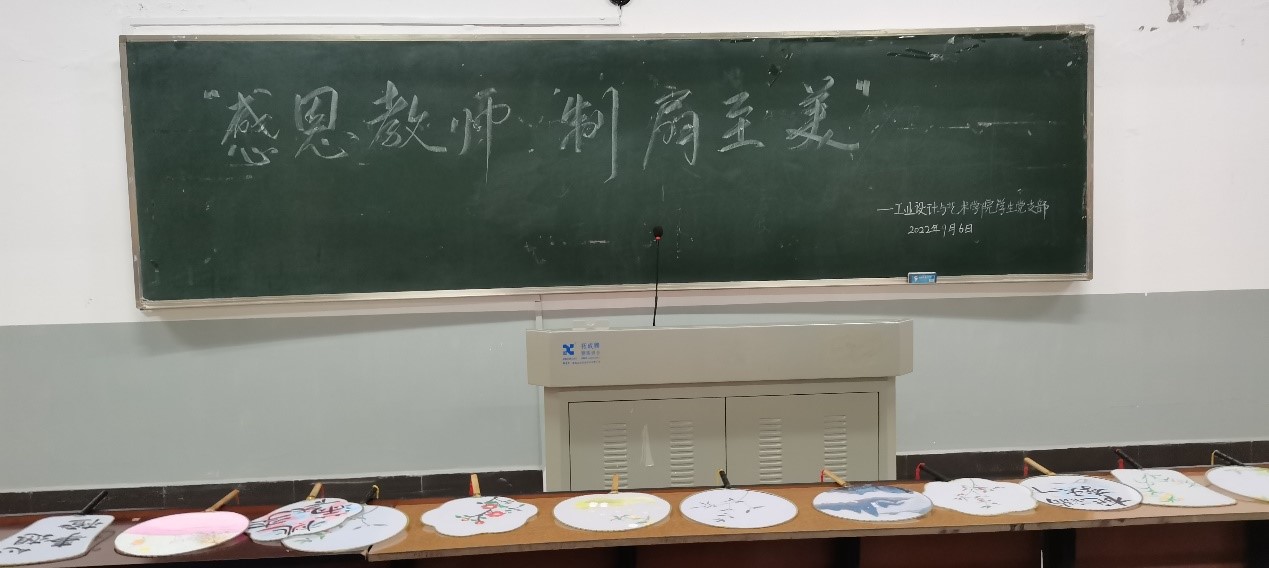 “感恩教师 制扇至美”
—工业设计与艺术学院学生党支部
2022年9月6日